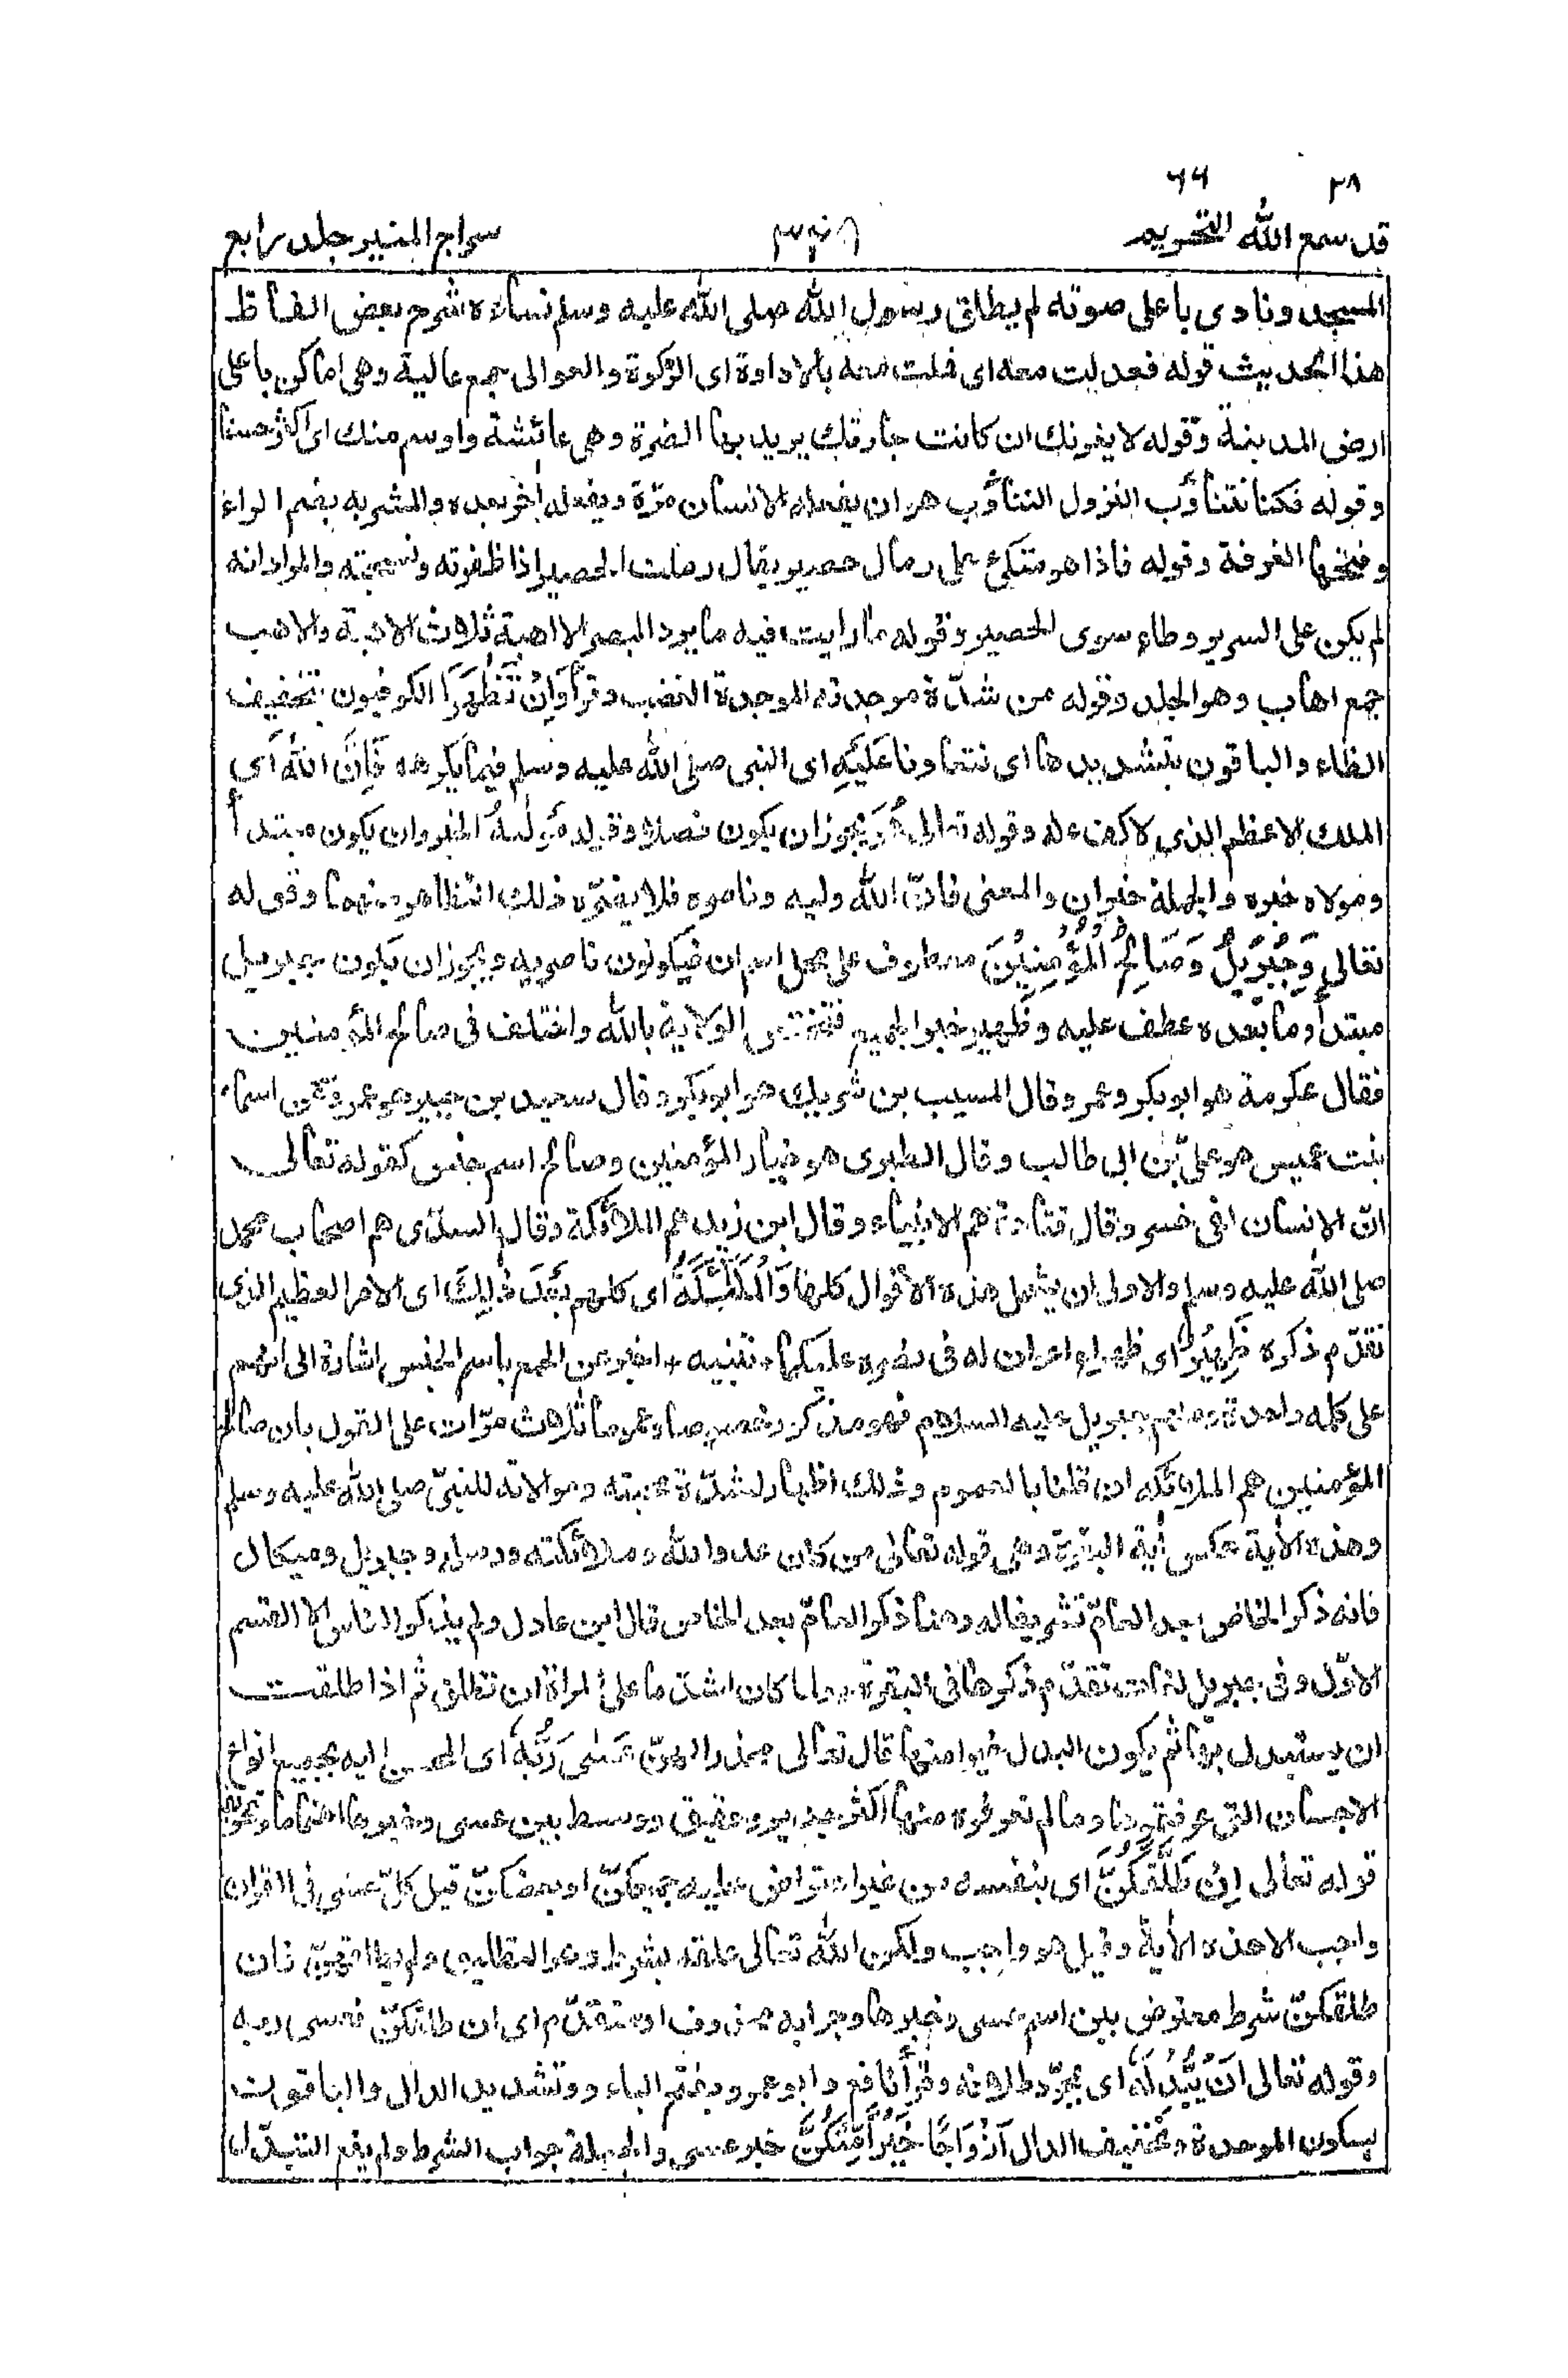 ٢٨ ٦٦
قد سمع الله التحريم سراج المنير جلد رابع
المسجد ونادى باعلى صوته لم يطلق رسول الله صلى الله عليه وسلم نساءه شرح بعض الفاظ
هذا الحديث قوله فعدلت معه اى فملت معه بالاداوة اى الركوة والعوالى جمع عالية وهى اماكن باعلى
ارض المدينة وقوله لا يغرنك ان كانت جارتك يريد بها الضرة وهى عائشة واوسم منك اى اكثر حسنا
وقوله فكنا نتناوب النزول التناوب هو ان يفعله الانسان مرّة ويفعله اٰخر بعده والمشربه بضم الراء
وفتحها الغرفة وقوله فاذا هو متكئ على رمال حصير يقال رملت الحصير اذا ظفرته ونسجته والمراد انه
لم يكن على السرير وطاء سوى الحصير وقوله ما رايت فيه ما يرد البصر الا اهبة ثلاث الاهبة والاهب
جمع اهاب وهو الجلد وقوله من شدّة موجدته الموجدة الغضب وقرأ وَاِنْ تَظٰهَرَا الكوفيون بتخفيف
الظاء والباقون بتشديدها اى تتعاونا عَلَيْهِ اى النبى صلى الله عليه وسلم فيما يكرهه فَاِنَّ اللّٰهَ اى
الملك الاعظم الذى لا كفء له وقوله تعالى هُوَ يجوز ان يكون فصلا وقوله مَوْلٰىهُ الخبر وان يكون مبتدأ
ومولاه خبره والجملة خبر ان والمعنى فانّ الله وليه وناصره فلا يضرّه ذلك التظاهر منهما وقوله
تعالى وَجِبْرِيْلُ وَصَالِحُ الْمُؤْمِنِيْنَ معطوف على محل اسم ان فيكونون ناصريه ويجوز ان يكون جبريل
مبتدأ وما بعده عطف عليه وظهير خبر الجميع فتختص الولاية بالله واختلف فى صالح المؤمنين
فقال عكرمة هو ابو بكر وعمر وقال المسيب بن شريك هو ابو بكر وقال سعيد بن جبير هو عمر وعن اسماء
بنت عميس هو علىّ بن ابى طالب وقال الطبرى هو خيار المؤمنين وصالح اسم جنس كقوله تعالى
انّ الانسان لفى خسر وقال قتادة هم الانبياء وقال ابن زيد هم الملائكة وقال السدّى هم اصحاب محمد
صلى الله عليه وسلم والاولى ان يشمل هذه الاقوال كلها وَالْمَلٰٓئِكَةُ اى كلهم بَعْدَ ذٰلِكَ اى الامر العظيم الذى
تقدّم ذكره ظَهِيْرٌ اى ظهراء اعوان له فى نصره عليكما تنبيه اخبر عن الجمع باسم الجنس اشارة الى انهم
على كلمة واحدة ومنهم جبريل عليه السلام فهو مذكور خصوصا وعموما ثلاث مرّات على القول بان صالح
المؤمنين هم الملائكة ان قلنا بالعموم وذلك اظهار لشدّة محبته وموالاته للنبىّ صلى الله عليه وسلم
وهذه الاٰية عكس اٰية البقرة وهى قوله تعالى من كان عدوا لله وملائكته ورسله وجبريل وميكال
فانه ذكر الخاص بعد العامّ تشريفا له وهنا ذكر العامّ بعد الخاص قال ابن عادل ولم يذكر الناس الا القسم
الاوّل وفى جبريل لغات تقدّم ذكرها فى البقرة ولما كان اشدّ ما على المراة ان تطلق ثم اذا طلقت
ان يستبدل بها ثم يكون البدل خيرا منها قال تعالى محذرا لهنّ عَسٰى رَبُّهٗ اى المحسن اليه بجميع انواع
الاحسان التى عرفتموها وما لم تعرفوه منها اكثر جدير وحقيق ووسط بين عسى وخبرها اهتماما وتخويفا
قوله تعالى اِنْ طَلَّقَكُنَّ اى بنفسه من غير اعتراض عليه جميعكنّ او بعضكنّ قيل كلّ عسى فى القراٰن
واجب الا هذه الاٰية وقيل هو واجب ولكن الله تعالى علقه بشرط وهو التطليق ولم يطلقهنّ فان
طلقكنّ شرط معترض بين اسم عسى وخبرها وجوابه محذوف او متقدّم اى ان طلقكنّ فعسى ربه
وقوله تعالى اَنْ يُّبْدِلَهٗ اى بمجرّد طلاقه وقرأ نافع وابو عمرو بفتح الباء وتشديد الدال والباقون
بسكون الموحدة وتخفيف الدال اَزْوَاجًا خَيْرًا مِّنْكُنَّ خبر عسى والجملة جواب الشرط ولم يقع التبدّل